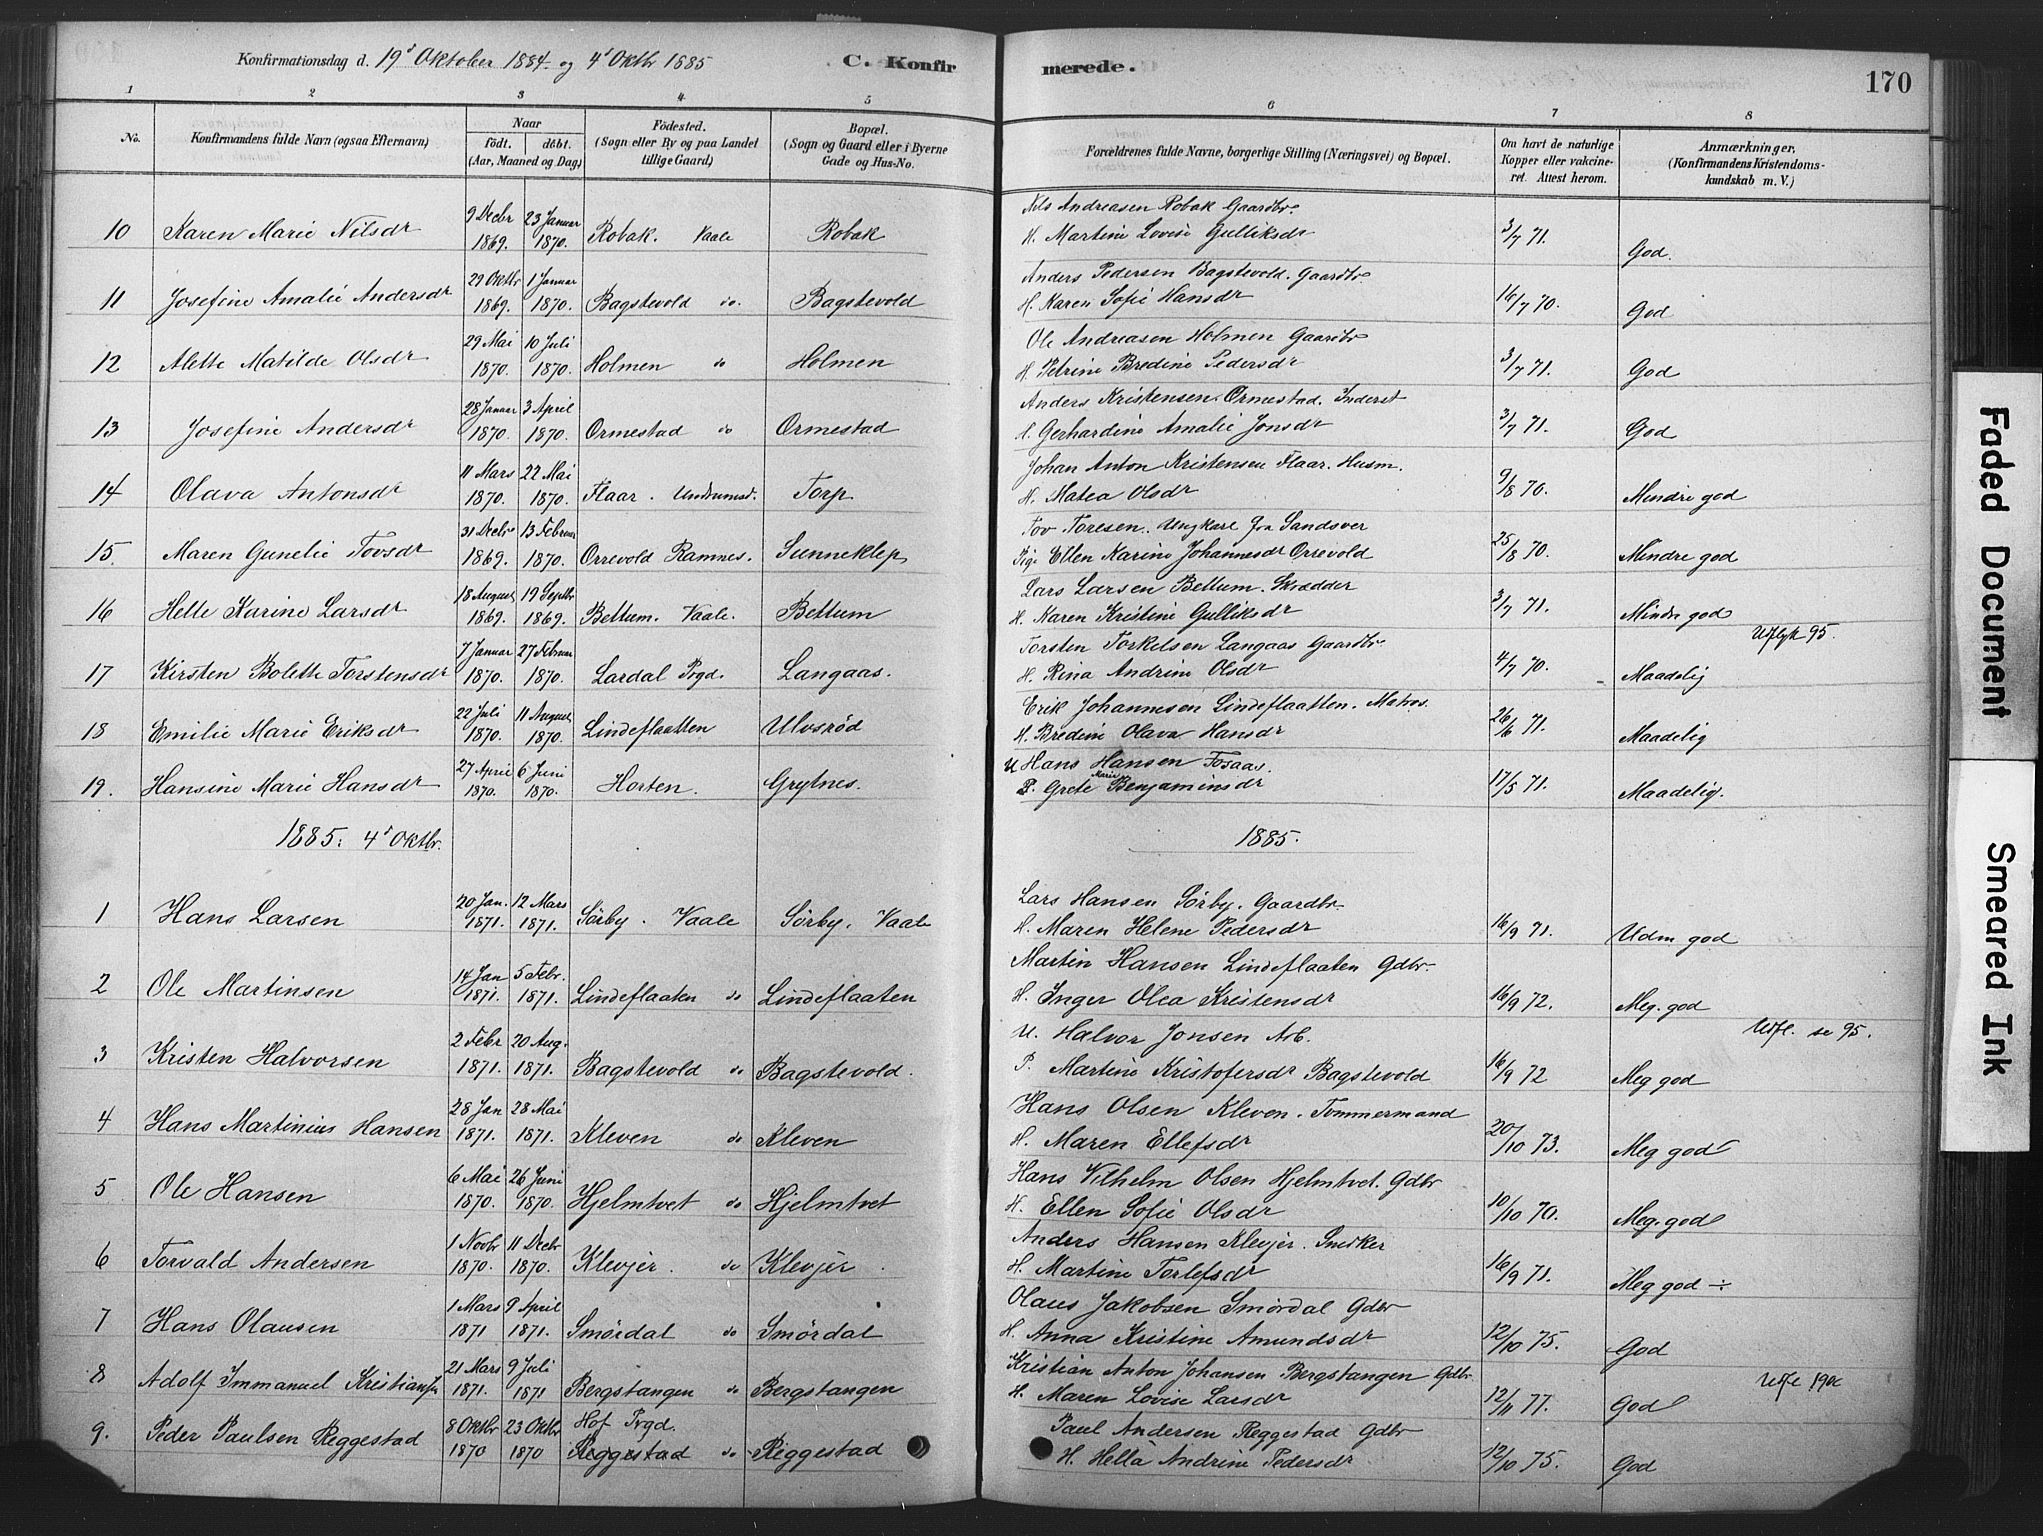 Konfirmationsdag d. 19d Oktober 1884 og 4d Oktbr 1885 C. Konfirmerede. 170
1 2 3 4 5 6 7 8
No. Konfirmandens fulde Navn (ogsaa Efternavn) Naar födt. döbt. (Aar, Maaned og Dag) Födested. (Sogn eller By og paa Landet tillige Gaard) Bopæl. (Sogn og Gaard eller i Byerne Gade og Hus-No. Forældrenes fulde Navne, borgerlige Stilling (Næringsvei) og Bopæl. Om havt de naturlige Kopper eller vakcineret. Attest herom. Anmærkninger. (Konfirmandens Kristendomskundskab m. V.)
10 Karen Marie Nilsdr 9 Decbr 1869. 23 Januar 1870. Robak. Vaale Robak Nils Andreasen Robak Gaardbr. H. Martine Lovise Gulliksdr 3/7 71. God.
11 Josefine Amalie Andersdr 29 Oktbr 1869. 1 Januar 1870. Bagstevold do. Bagstevold Anders Pedersen Bagstevold. Gaardbr. H. Karen Sofie Hansdr 16/7 70. God
12 Alette Matilde Olsdr 29 Mai 1870. 10 Juli 1870. Holmen do Holmen Ole Andreasen Holmen Gaardbr H. Petrine Bredine Pedersdr 3/7 71. God
13 Josefine Andersdr 28 Januar 1870. 3 April 1870. Ormestad do Ormestad Anders Kristensen Ormestad. Inderst H. Gerhardine Amalie Jonsdr 3/7 71. God
14 Olava Antonsdr 11 Mars 1870. 22 Mai 1870. Flaar. Undrumsd. Torp Johan Anton Kristensen Flaar. Husm. H. Matea Olsdr 9/8 70. Mindre god
15. Maren Gunelie Tovsdr 31 Decbr 1869. 13 Februar 1870. Orrevold Ramnes. Sunneklep Tov Toresen. Ungkarl fra Sandsver Pige Ellen Karine Johannesdr Orrevold 25/8 70. Mindre god
16 Helle Karine Larsdr 18 August 1869. 19 Septbr 1869. Bettum. Vaale. Bettum Lars Larsen Bettum. Skrædder H. Karen Kristine Gulliksdr 3/7 71. Mindre god
17 Kirsten Bolette Torstensdr 7 Januar 1870. 27 Februar 1870. Lardal Prgd. Langaas. Torsten Torkelsen Langaas Gaardbr. H. Rina Andrine Olsdr 4/7 70. Maadelig Utflyt 95.
18 Emilie Marie Eriksdr 22 Juli 1870. 11 August 1870. Lindeflaatten Ulvsröd Erik Johannesen Lindeflaatten. Matros. H. Bredine Olava Hansdr 26/6 71. Maadelig
19. Hansine Marie Hansdr 27 April 1870. 6 Juni 1870. Horten. Grytnes. U Hans Hansen Fosaas. P. Grete Marie Benjaminsdr 17/5 71. Maadelig.
1885. 4d Oktbr. 1885.
1 Hans Larsen 20 Jan. 1871. 12 Mars 1871. Sörby. Vaale Sörby. Vaale Lars Hansen Sörby. Gaardbr. H. Maren Helene Pedersdr 16/9 71. Udm god
2 Ole Martinsen 14 Jan 1871. 5 Febr. 1871. Lindeflaaten do Lindeflaaten Martin Hansen Lindeflaaten Gdbr. H. Inger Olea Kristensdr 16/9 72. Meg. god
3 Kristen Halvorsen 2 Febr 1871. 20 Aug. 1871. Bagstevold do Bagstevold. U. Halvor Jonsen Arb. P. Martine Kristofersdr Bagstevold 16/9 72 Meg god Utfl. se 95.
4 Hans Martinius Hansen 28 Jan 1871. 28 Mai 1871. Kleven do Kleven Hans Olsen Kleven. Tömmermand H. Maren Ellefsdr 20/10 73. Meg god
5 Ole Hansen 6 Mai 1870. 26 Juni 1870. Hjelmtvet do Hjelmtvet Hans Vilhelm Olsen Hjelmtvet. Gdbr H. Ellen Sofie Olsdr 10/10 70. Meg. god
6 Torvald Andersen 1 Novbr 1870. 11 Decbr 1870. Klevjer. do Klevjer. Anders Hansen Klevjer. Snedker H. Martine Torlefsdr 16/9 71. Meg god ÷
7 Hans Olausen 1 Mars 1871 9 April 1871. Smördal do Smördal Olaus Jakobsen Smördal Gdbr H. Anna Kristine Amundsdr 12/10 75. God
8 Adolf Immanuel Kristiansen 21 Mars 1871. 9 Juli 1871 Bergstangen do Bergstangen Kristian Anton Johansen Bergstangen Gdbr. H. Maren Lovise Larsdr 12/11 77. God Utfl
9. Peder Paulsen Reggestad 8 Oktbr 1870 23 Oktbr 1870 Hof Prgd. Reggestad do Reggestad Paul Andersen Reggestad Gdbr H. Hella Andrine Pedersdr 12/10 75. God
Faded Document
Smeared Ink